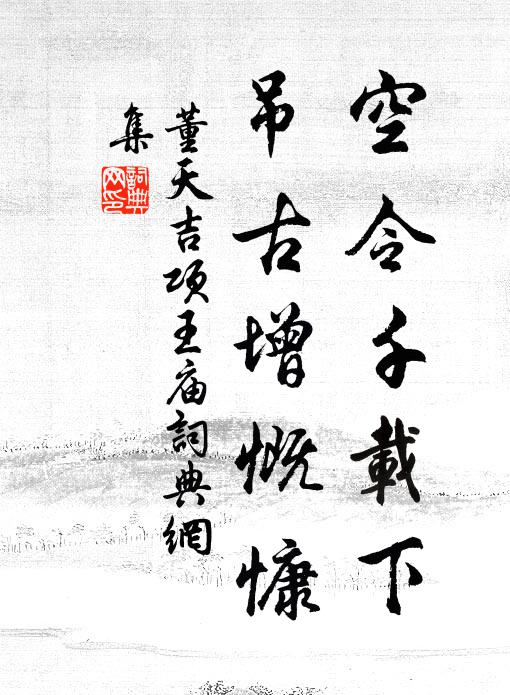 空令千載下
吊古增慨慷
董天吉項王庙詞典網
集
詞典
网印